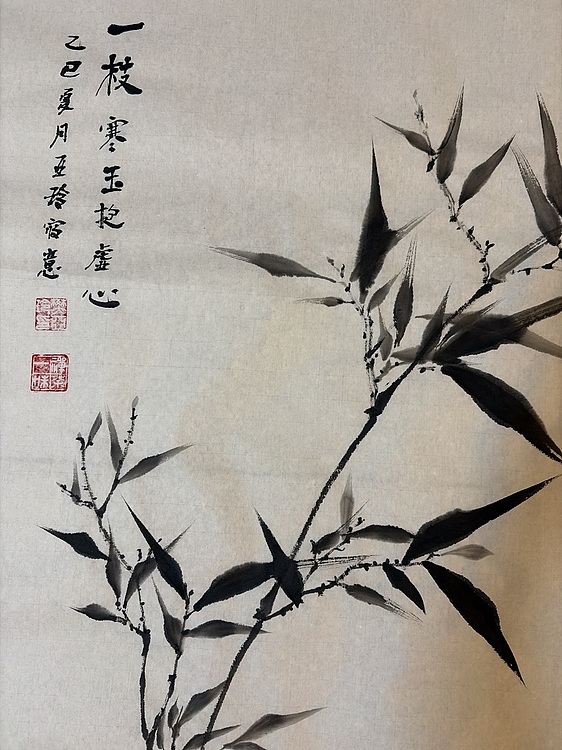 一枝寒玉抱虚心
乙巳夏月亚玲写意